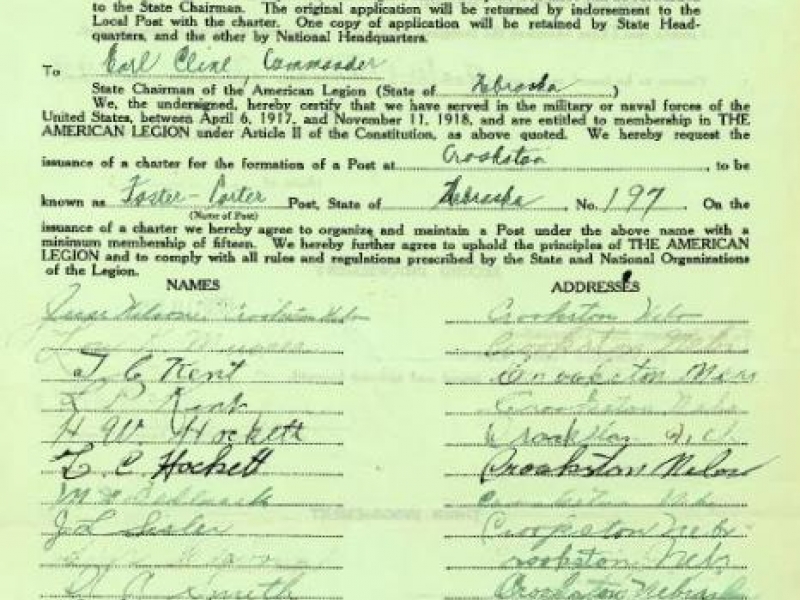 to the State Chairman. The original application will be returned by indorsement to the
Local Post with the charter. One copy of application will be retained by State Head-
quarters, and the other by National Headquarters.
To Earl Cline, Commander
State Chairman of the American Legion (State of Nebraska)
We, the undersigned, hereby certify that we have served in the military or naval forces of the
United States, between April 6, 1917, and November 11, 1918, and are entitled to membership in THE
AMERICAN LEGION under Article II of the Constitution, as above quoted. We hereby request the
issuance of a charter for the formation of a Post at Crookston, to be
known as Foster-Porter Post, State of Nebraska, No. 197 On the
(Name of Post)
issuance of a charter we hereby agree to organize and maintain a Post under the above name with a
minimum membership of fifteen. We hereby further agree to uphold the principles of THE AMERICAN
LEGION and to comply with all rules and regulations prescribed by the State and National Organizations
of the Legion.
NAMES ADDRESSES
Nelson Crookston Nebr Crookston Nebr
Crookston Nebr
T. C. Kent Crookston Nebr
Kent Crookston Nebr
H. W. Hockett Crookston
L. C. Hockett Crookston Nebr
Crookston Nebr
J L Sisler Crookston Nebr
Crookston Nebr
Smith Crookston Nebraska